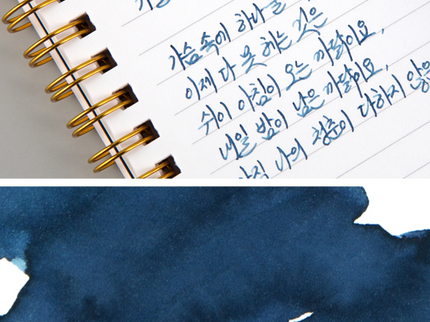 가슴속에 하나 둘
이제 다 못 헤는 것은
쉬이 아침이 오는 까닭이요,
내일 밤이 남은 까닭이요,
아직 나의 청춘이 다하지 않은